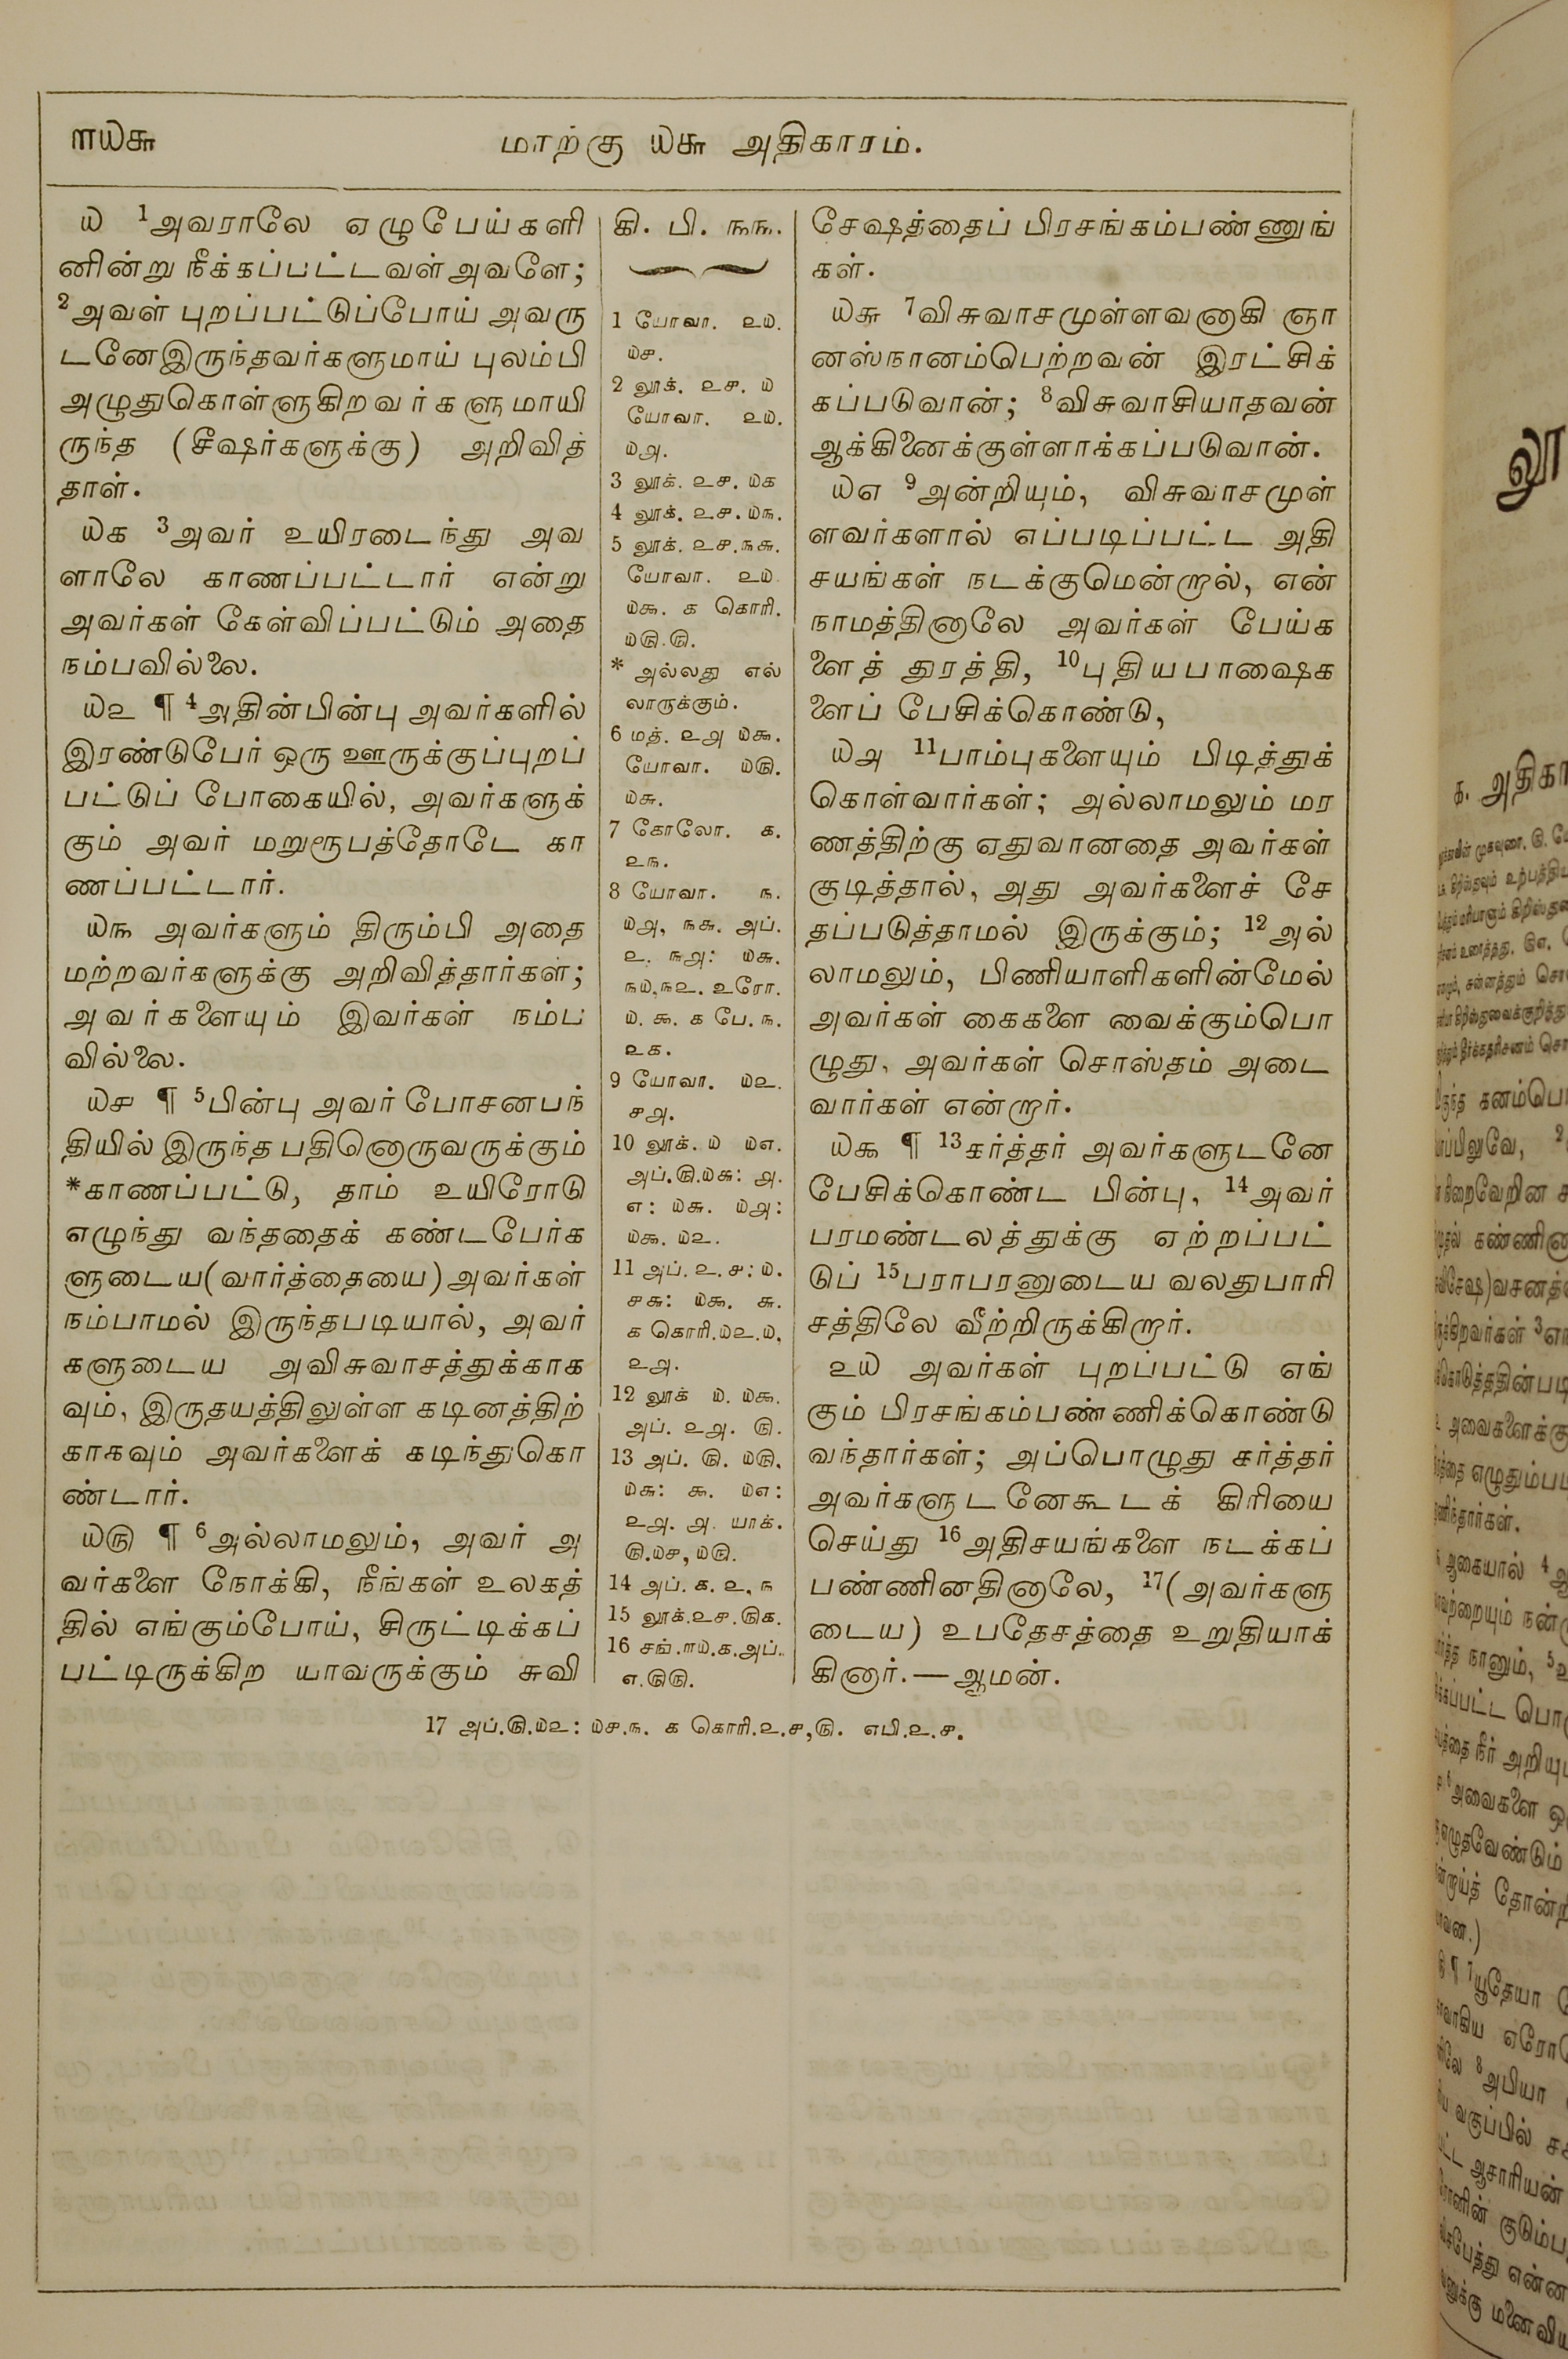 ௱௰௬
மாற்கு ௰௬ அதிகாரம்.
௰ 1அவராலே ஏழுபேய்களி
னின்று நீக்கப்பட்டவள் அவளே;
2அவள் புறப்பட்டுப்போய் அவரு
டனேஇருந்தவர்களுமாய் புலம்பி
அழுதுகொள்ளுகிறவர்களுமாயி
ருந்த (சீஷர்களுக்கு) அறிவித்
தாள்.
௰௧ 3அவர் உயிரடைந்து அவ
ளாலே காணப்பட்டார் என்று
அவர்கள் கேள்விப்பட்டும் அதை
நம்பவில்லை.
௰௨ ¶ 4அதின்பின்பு அவர்களில்
இரண்டுபேர் ஒரு ஊருக்குப்புறப்
பட்டுப் போகையில், அவர்களுக்
கும் அவர் மறுரூபத்தோடே கா
ணப்பட்டார்.
௰௩ அவர்களும் திரும்பி அதை
மற்றவர்களுக்கு அறிவித்தார்கள்;
அவர்களையும் இவர்கள் நம்ப
வில்லை.
௰௪ ¶ 5பின்பு அவர் போசனபந்
தியில் இருந்த பதினொருவருக்கும்
*காணப்பட்டு, தாம் உயிரோடு
எழுந்து வந்ததைக் கண்டபேர்க
ளுடைய(வார்த்தையை)அவர்கள்
நம்பாமல் இருந்தபடியால், அவர்
களுடைய அவிசுவாசத்துக்காக
வும், இருதயத்திலுள்ள கடினத்திற்
காகவும் அவர்களைக் கடிந்துகொ
ண்டார்.
௰௫ ¶ 6அல்லாமலும், அவர் அ
வர்களை நோக்கி, நீங்கள் உலகத்
தில் எங்கும்போய், சிருட்டிக்கப்
பட்டிருக்கிற யாவருக்கும் சுவி
கி. பி. ௩௩.
1 யோவா. ௨௰.
௰௪.
2 லூக். ௨௪. ௰
யோவா. ௨௰.
௰௮.
3 லூக். ௨௪. ௰௧
4 லூக். ௨௪. ௰௩.
5 லூக். ௨௪.௩௬.
யோவா. ௨௰
௰௯. ௧ கொரி.
௰௫.௫.
* அல்லது எல்
லாருக்கும்.
6 மத். ௨௮ ௰௯.
யோவா. ௰௫.
௰௬.
7 கோலோ. ௧.
௨௩.
8 யோவா. ௩.
௰௮, ௩௬. அப்.
௨. ௩௮: ௰௬.
௩௰.௩௨. உரோ.
௰. ௯. ௧ பே. ௩.
௨௧.
9 யோவா. ௰௨.
௪௮.
10 லூக். ௰ ௰௭.
அப்.௫.௰௬: ௮.
௭: ௰௬. ௰௮:
௰௯. ௰௨.
11 அப். ௨. ௪: ௰.
௪௬: ௰௯. ௬.
௧ கொரி.௰௨.௰,
௨௮.
12 லூக் ௰. ௰௯.
அப். ௨௮. ௫.
13 அப். ௫. ௰௫,
௰௬: ௯. ௰௭:
௨௮. ௮. யாக்.
௫.௰௪, ௰௫.
14 அப். ௧. ௨, ௩
15 லூக்.௨௪.௫௧.
16 சங்.௱௰.௧.அப்.
௭.௫௫.
சேஷத்தைப் பிரசங்கம்பண்ணுங்
கள்.
௰௬ 7விசுவாசமுள்ளவனாகி ஞா
னஸ்நானம்பெற்றவன் இரட்சிக்
கப்படுவான்; 8விசுவாசியாதவன்
ஆக்கினைக்குள்ளாக்கப்படுவான்.
௰௭ 9அன்றியும், விசுவாசமுள்
ளவர்களால் எப்படிப்பட்ட அதி
சயங்கள் நடக்குமென்றால், என்
நாமத்தினாலே அவர்கள் பேய்க
ளைத் துரத்தி, 10புதியபாஷைக
ளைப் பேசிக்கொண்டு,
௰௮ 11பாம்புகளையும் பிடித்துக்
கொள்வார்கள்; அல்லாமலும் மர
ணத்திற்கு ஏதுவானதை அவர்கள்
குடித்தால், அது அவர்களைச் சே
தப்படுத்தாமல் இருக்கும்; 12அல்
லாமலும், பிணியாளிகளின்மேல்
அவர்கள் கைகளை வைக்கும்பொ
ழுது, அவர்கள் சொஸ்தம் அடை
வார்கள் என்றார்.
௰௯ ¶ 13கர்த்தர் அவர்களுடனே
பேசிக்கொண்ட பின்பு, 14அவர்
பரமண்டலத்துக்கு ஏற்றப்பட்
டுப் 15பராபரனுடைய வலதுபாரி
சத்திலே வீற்றிருக்கிறார்.
௨௰ அவர்கள் புறப்பட்டு எங்
கும் பிரசங்கம்பண்ணிக்கொண்டு
வந்தார்கள்; அப்பொழுது கர்த்தர்
அவர்களுடனேகூடக் கிரியை
செய்து 16அதிசயங்களை நடக்கப்
பண்ணினதினாலே, 17(அவர்களு
டைய) உபதேசத்தை உறுதியாக்
கினார்.—ஆமன்.
17 அப்.௫.௰௨: ௰௪.௩. ௧ கொரி.௨.௪,௫. எபி.௨.௪.
லூ
௧. அதிகா